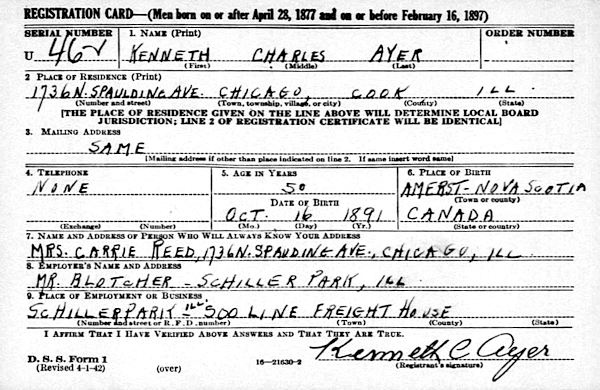 REGISTRATION CARD—(Men born on or after April 28, 1877 and on or before February 16, 1897)
SERIAL NUMBER 1. NAME (Print) ORDER NUMBER
U 462 KENNETH CHARLES AYER
(First) (Middle) (Last)
2 PLACE OF RESIDENCE (Print)
1736 N. SPAULDING AVE. CHICAGO, COOK ILL
(Number and street) (Town, township, village, or city) (County) (State)
[THE PLACE OF RESIDENCE GIVEN ON THE LINE ABOVE WILL DETERMINE LOCAL BOARD
JURISDICTION; LINE 2 OF REGISTRATION CERTIFICATE WILL BE IDENTICAL]
3. MAILING ADDRESS
SAME
[Mailing address if other than place indicated on line 2. If same insert word same]
4. TELEPHONE 5. AGE IN YEARS 6. PLACE OF BIRTH
NONE 50 AMERST-NOVA SCOTIA
DATE OF BIRTH (Town or county)
OCT. 16 1891 CANADA
(Exchange) (Number) (Mo.) (Day) (Yr.) (State or country)
7. NAME AND ADDRESS OF PERSON WHO WILL ALWAYS KNOW YOUR ADDRESS
MRS. CARRIE REED, 1736 N. SPAUDING AVE., CHICAGO, ILL
8. EMPLOYER'S NAME AND ADDRESS
MR. BLOTCHER - SCHILLER PARK, ILL
9. PLACE OF EMPLOYMENT OR BUSINESS
SCHILLER PARK ILL. - SOO LINE FREIGHT HOUSE
(Number and street or R. F. D. number) (Town) (County) (State)
I AFFIRM THAT I HAVE VERIFIED ABOVE ANSWERS AND THAT THEY ARE TRUE.
D. S. S. Form 1
(Revised 4-1-42) (over) 16—21630-2 Kenneth C. Ayer
(Registrant's signature)